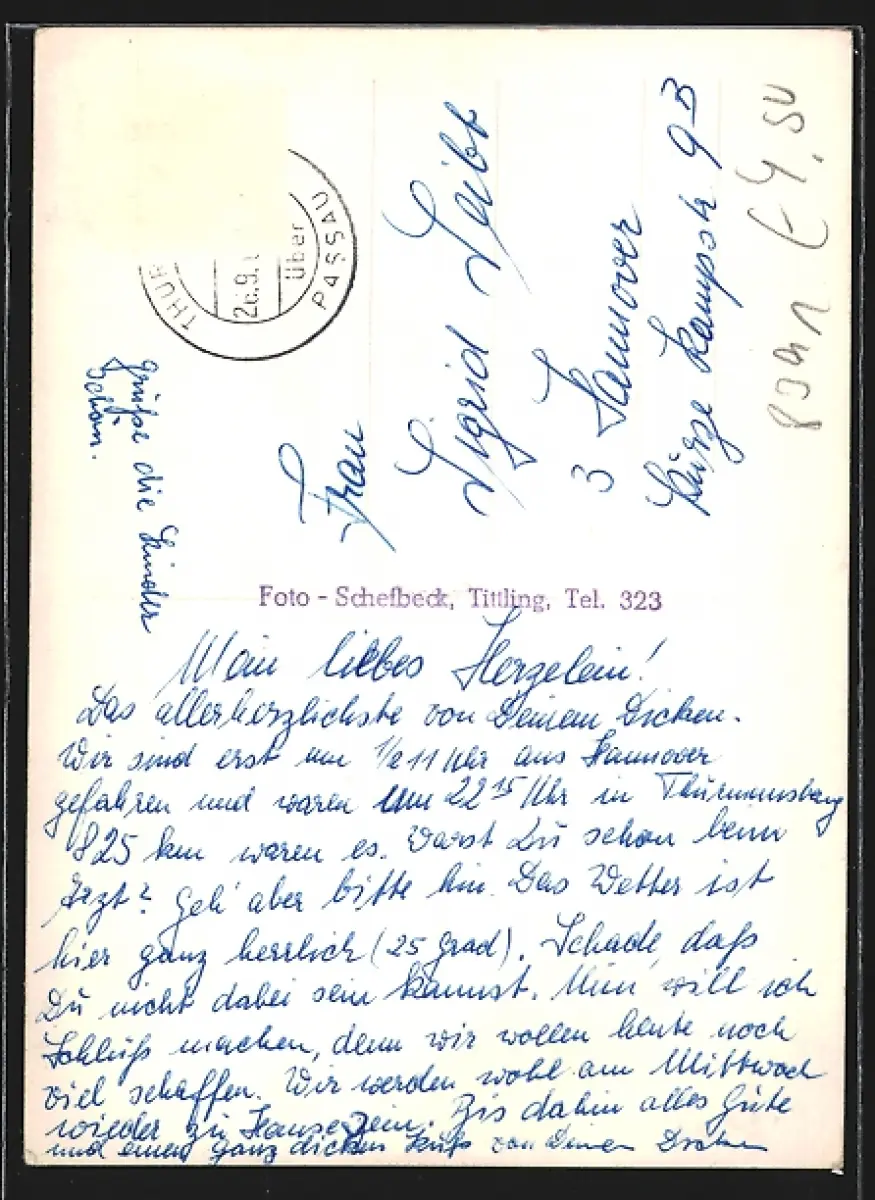 THUR
26.9.
über
PASSAU
Frau
Sigrid Seibt
3 Hannover
Kurze Kampstr 9B
8391 E 4,50
Grüße die Kinder
schön.
Foto - Schefbeck, Tittling, Tel. 323
Mein liebes Herzelein!
Das allerherzlichste von Deinem Dicken.
Wir sind erst um 1/2 11 Uhr aus Hannover
gefahren und waren um 22 15 Uhr in Thurmansbang
825 km waren es. Warst Du schon beim
Arzt? Geh' aber bitte hin. Das Wetter ist
hier ganz herrlich (25 Grad). Schade, daß
Du nicht dabei sein kannst. Nun will ich
Schluß machen, denn wir wollen heute noch
viel schaffen. Wir werden wohl am Mittwoch
wieder zu Hause sein. Bis dahin alles Gute
und einen ganz dicken Kuß von Deinem Dicken